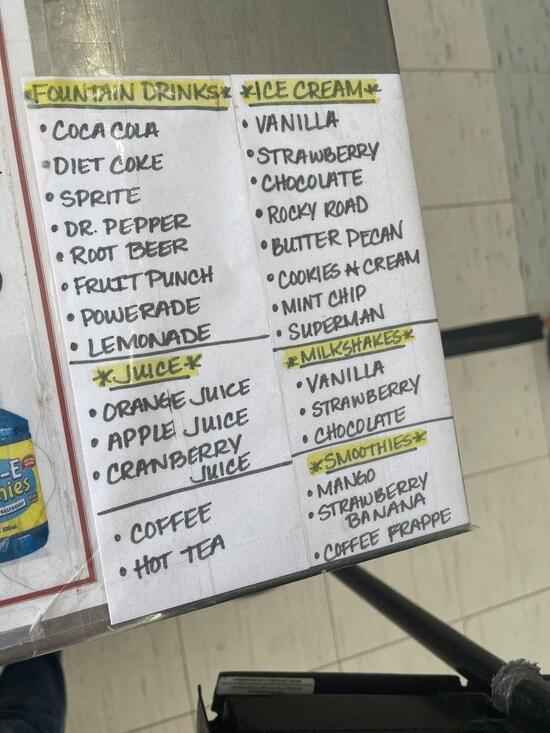 *FOUNTAIN DRINKS*
• COCA COLA
• DIET COKE
• SPRITE
• DR. PEPPER
• ROOT BEER
• FRUIT PUNCH
• POWERADE
• LEMONADE
*JUICE*
• ORANGE JUICE
• APPLE JUICE
• CRANBERRY
JUICE
• COFFEE
• HOT TEA
*ICE CREAM*
• VANILLA
• STRAWBERRY
• CHOCOLATE
• ROCKY ROAD
• BUTTER PECAN
• COOKIES N CREAM
• MINT CHIP
• SUPERMAN
*MILKSHAKES*
• VANILLA
• STRAWBERRY
• CHOCOLATE
*SMOOTHIES*
• MANGO
• STRAWBERRY
BANANA
• COFFEE FRAPPE
-E
nies